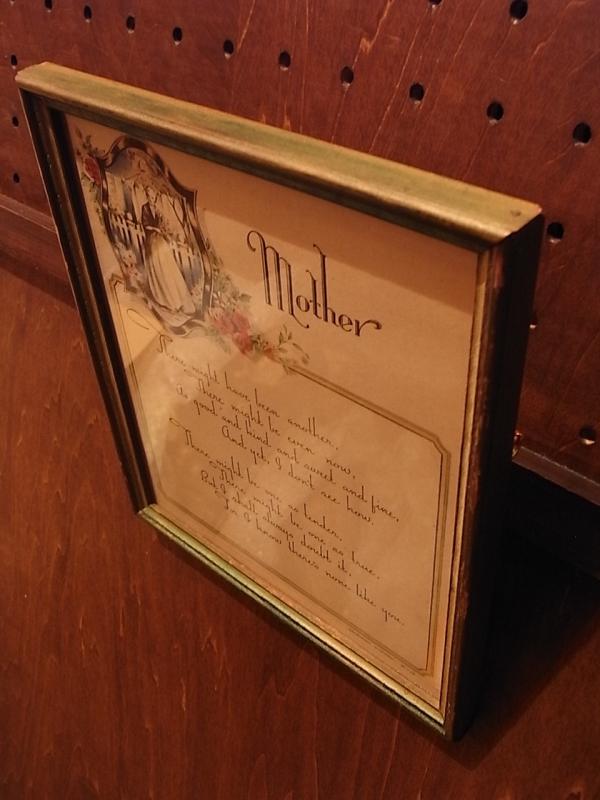 Mother
There might have been another,
There might be even now,
As good and kind and sweet and fine,
And yet, I don't see how.
There might be one so tender,
There might be one as true,
But I shall always doubt it,
For I know there's none like you.